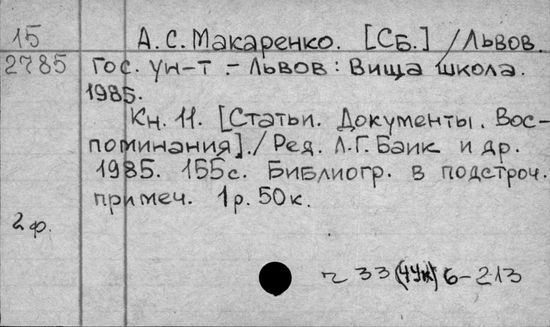 15 А.С. Макаренко. [Сб.] / Львов.
2785 гос. ун-т. - Львов: Вища школа.
1985.
Кн. 11. [Статьи. Документы. Вос-
поминания]./ Ред. Л.Г. Баик и др.
1985. 155с. Библиогр. в подстроч.
примеч. 1р. 50к.
2ф.
ч 33(4Ук)6-213